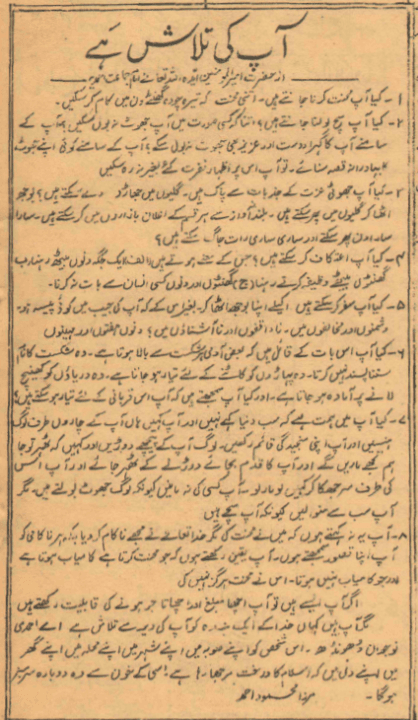 آپ کی تلاش ہے
از حضرت امیر المومنین ایدہ اللہ تعالےٰ امام جماعت احمدیہ
۱۔ کیا آپ محنت کرنا جانتے ہیں۔ اتنی محنت کہ تیرہ چودہ گھنٹے دن میں کام کر سکیں۔
۲۔ کیا آپ سچ بولنا جانتے ہیں؟ اتنا کہ کسی صورت میں آپ جھوٹ نہ بول سکیں۔ آپ کے
سامنے آپ کا گہرا دوست اور عزیز بھی جھوٹ نہ بول سکے؟ آپ کے سامنے کوئی اپنے جھوٹ کا
بہادرانہ قصہ سنائے۔ تو آپ اس پر اظہار نفرت کئے بغیر نہ رہ سکیں
۳۔ کیا آپ جھوٹی عزت کے جذبات سے پاک ہیں۔ گلیوں میں جھاڑو دے سکتے ہیں؟ بوجھ
اٹھا کر گلیوں میں پھر سکتے ہیں۔ بلند آواز سے ہر قسم کے اعلان بازاروں میں کر سکتے ہیں۔ سارا
سارا دن پھر سکتے اور ساری ساری رات جاگ سکتے ہیں؟
۴۔ کیا آپ اعتکاف کر سکتے ہیں؟ جس کے معنے ہوتے ہیں (الف) ایک جگہ دنوں بیٹھ رہنا (ب)
گھنٹوں بیٹھے وظیفہ کرتے رہنا (ج) گھنٹوں اور دنوں کسی انسان سے بات نہ کرنا۔
۵۔ کیا آپ سفر کر سکتے ہیں۔ اکیلے اپنا بوجھ اٹھا کر۔ بغیر اس کے کہ آپ کی جیب میں کوئی پیسہ ہو۔
دشمنوں اور مخالفوں میں۔ ناواقفوں اور ناآشناؤں میں؟ دنوں ہفتوں اور مہینوں
۶۔ کیا آپ اس بات کے قائل ہیں کہ بعض آدمی ہر شکست سے بالا ہوتا ہے۔ وہ شکست کا نام
سننا پسند نہیں کرتا۔ وہ پہاڑوں کو کاٹنے کے لئے تیار ہو جاتا ہے۔ وہ دریاؤں کو کھینچ
لانے پر آمادہ ہو جاتا ہے۔ اور کیا آپ سمجھتے ہیں کہ آپ اس قربانی کے لئے تیار ہو سکتے ہیں؟
۷۔ کیا آپ میں ہمت ہے کہ سب دنیا کہے نہیں اور آپ کہیں ہاں آپ کے چاروں طرف لوگ
ہنسیں اور آپ اپنی سنجیدگی قائم رکھیں۔ لوگ آپ کے پیچھے دوڑیں اور کہیں کہ ٹھہر تو جا
ہم تجھے ماریں گے اور آپ کا قدم بجائے دوڑنے کے ٹھہر جائے اور آپ اس
کی طرف سر جھکا کر کہیں لو مار لو۔ آپ کسی کی نہ مانیں کیونکہ لوگ جھوٹ بولتے ہیں۔ مگر
آپ سب سے منوا لیں کیونکہ آپ سچے ہیں
۸۔ آپ یہ نہ کہتے ہوں کہ میں نے محنت کی مگر خدا تعالےٰ نے مجھے ناکام کر دیا بلکہ ہر ناکامی کو
آپ اپنا قصور سمجھتے ہوں۔ آپ یقین رکھتے ہوں کہ جو محنت کرتا ہے کامیاب ہوتا ہے
اور جو کامیاب نہیں ہوتا۔ اس نے محنت ہرگز نہیں کی
اگر آپ ایسے ہیں تو آپ اچھا مبلغ اور اچھا تاجر ہونے کی قابلیت رکھتے ہیں
مگر آپ ہیں کہاں خدا کے ایک بندہ کو آپ کی دیر سے تلاش ہے اے احمدی
نوجوان ڈھونڈھ۔ اس شخص کو اپنے صوبہ میں اپنے شہر میں اپنے محلہ میں اپنے گھر
میں اپنے دل میں کہ اسلام کا درخت مرجھا رہا ہے اسی کے خون سے وہ دوبارہ سرسبز
ہوگا۔ مرزا محمود احمد